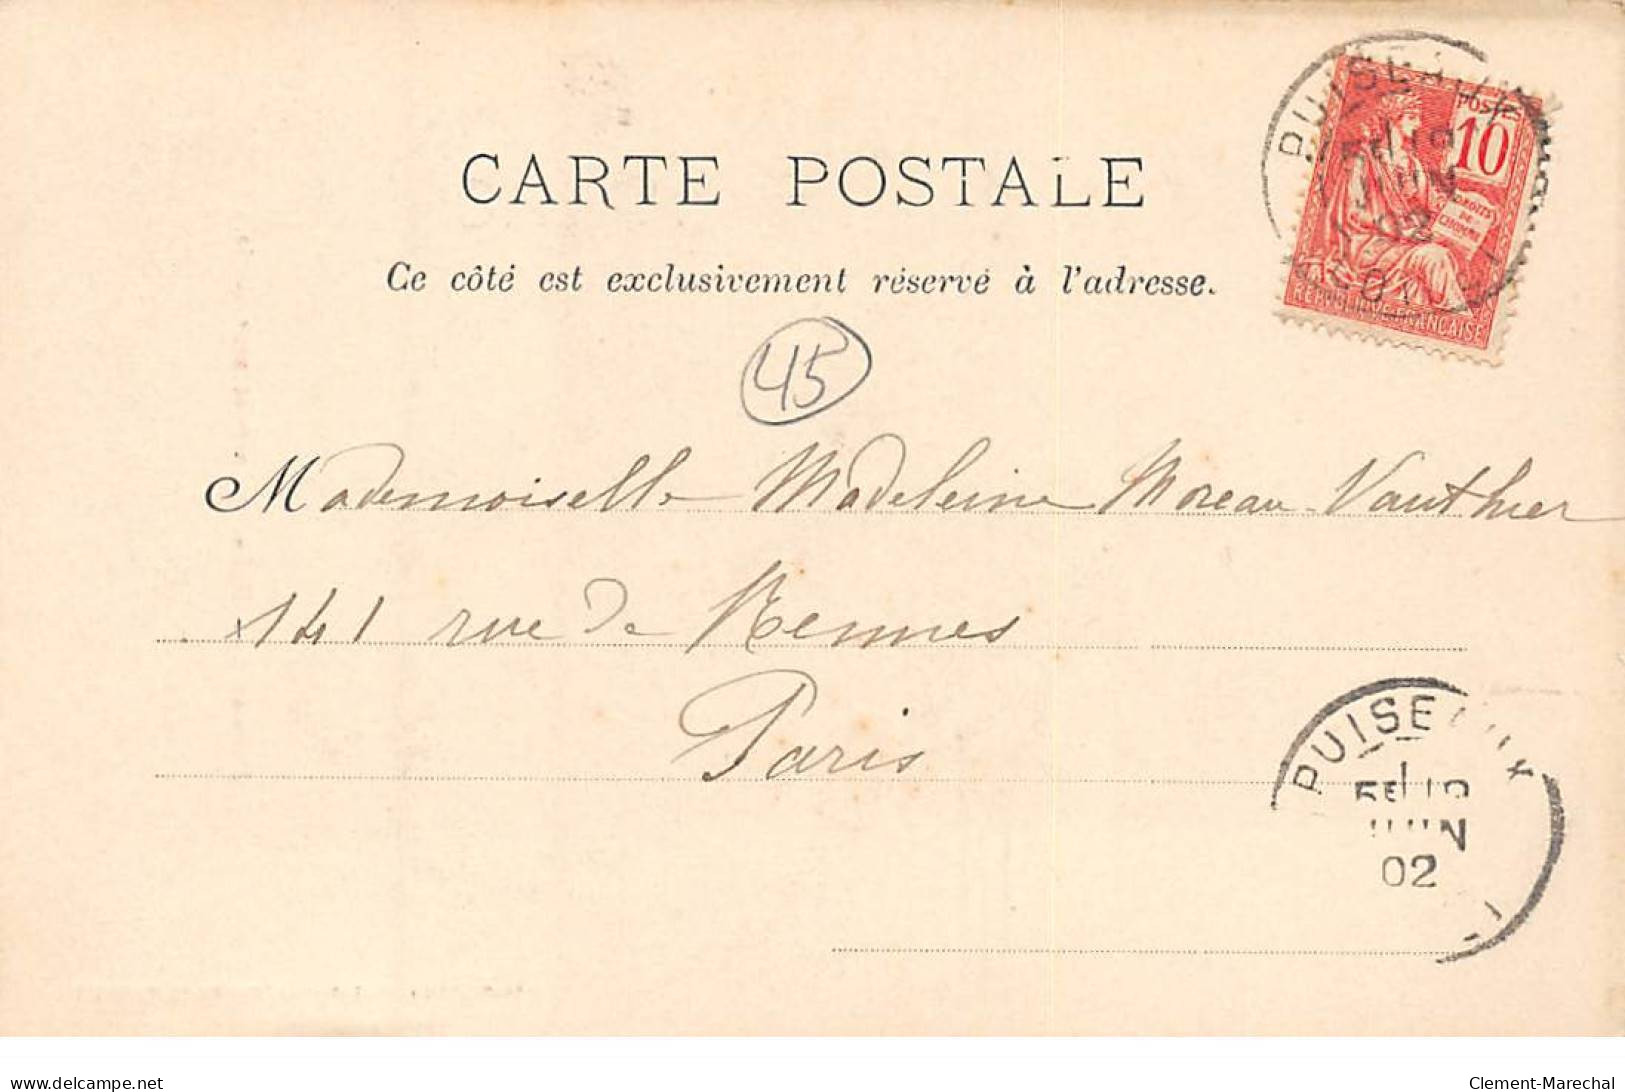 CARTE POSTALE
Ce côté est exclusivement réservé à l'adresse.
POSTE
10
DROITS
DE
L'HOMME
REPUBLIQUE FRANÇAISE
PUISEAUX
JUIN
02
LOIRET
45
Mademoiselle Madeleine Moreau-Vauthier
141 rue de Rennes
Paris
PUISEAUX
JUIN
02
delcampe.net
Clement-Marechal